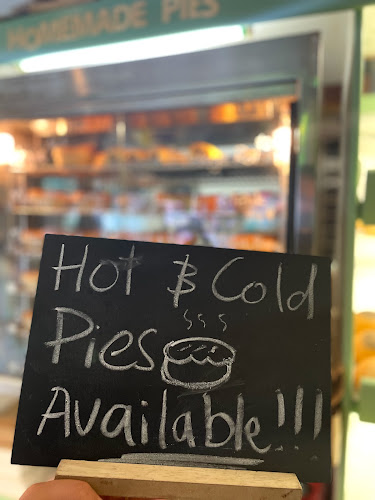 HOMEMADE PIES
Hot & Cold
Pies
Available!!!